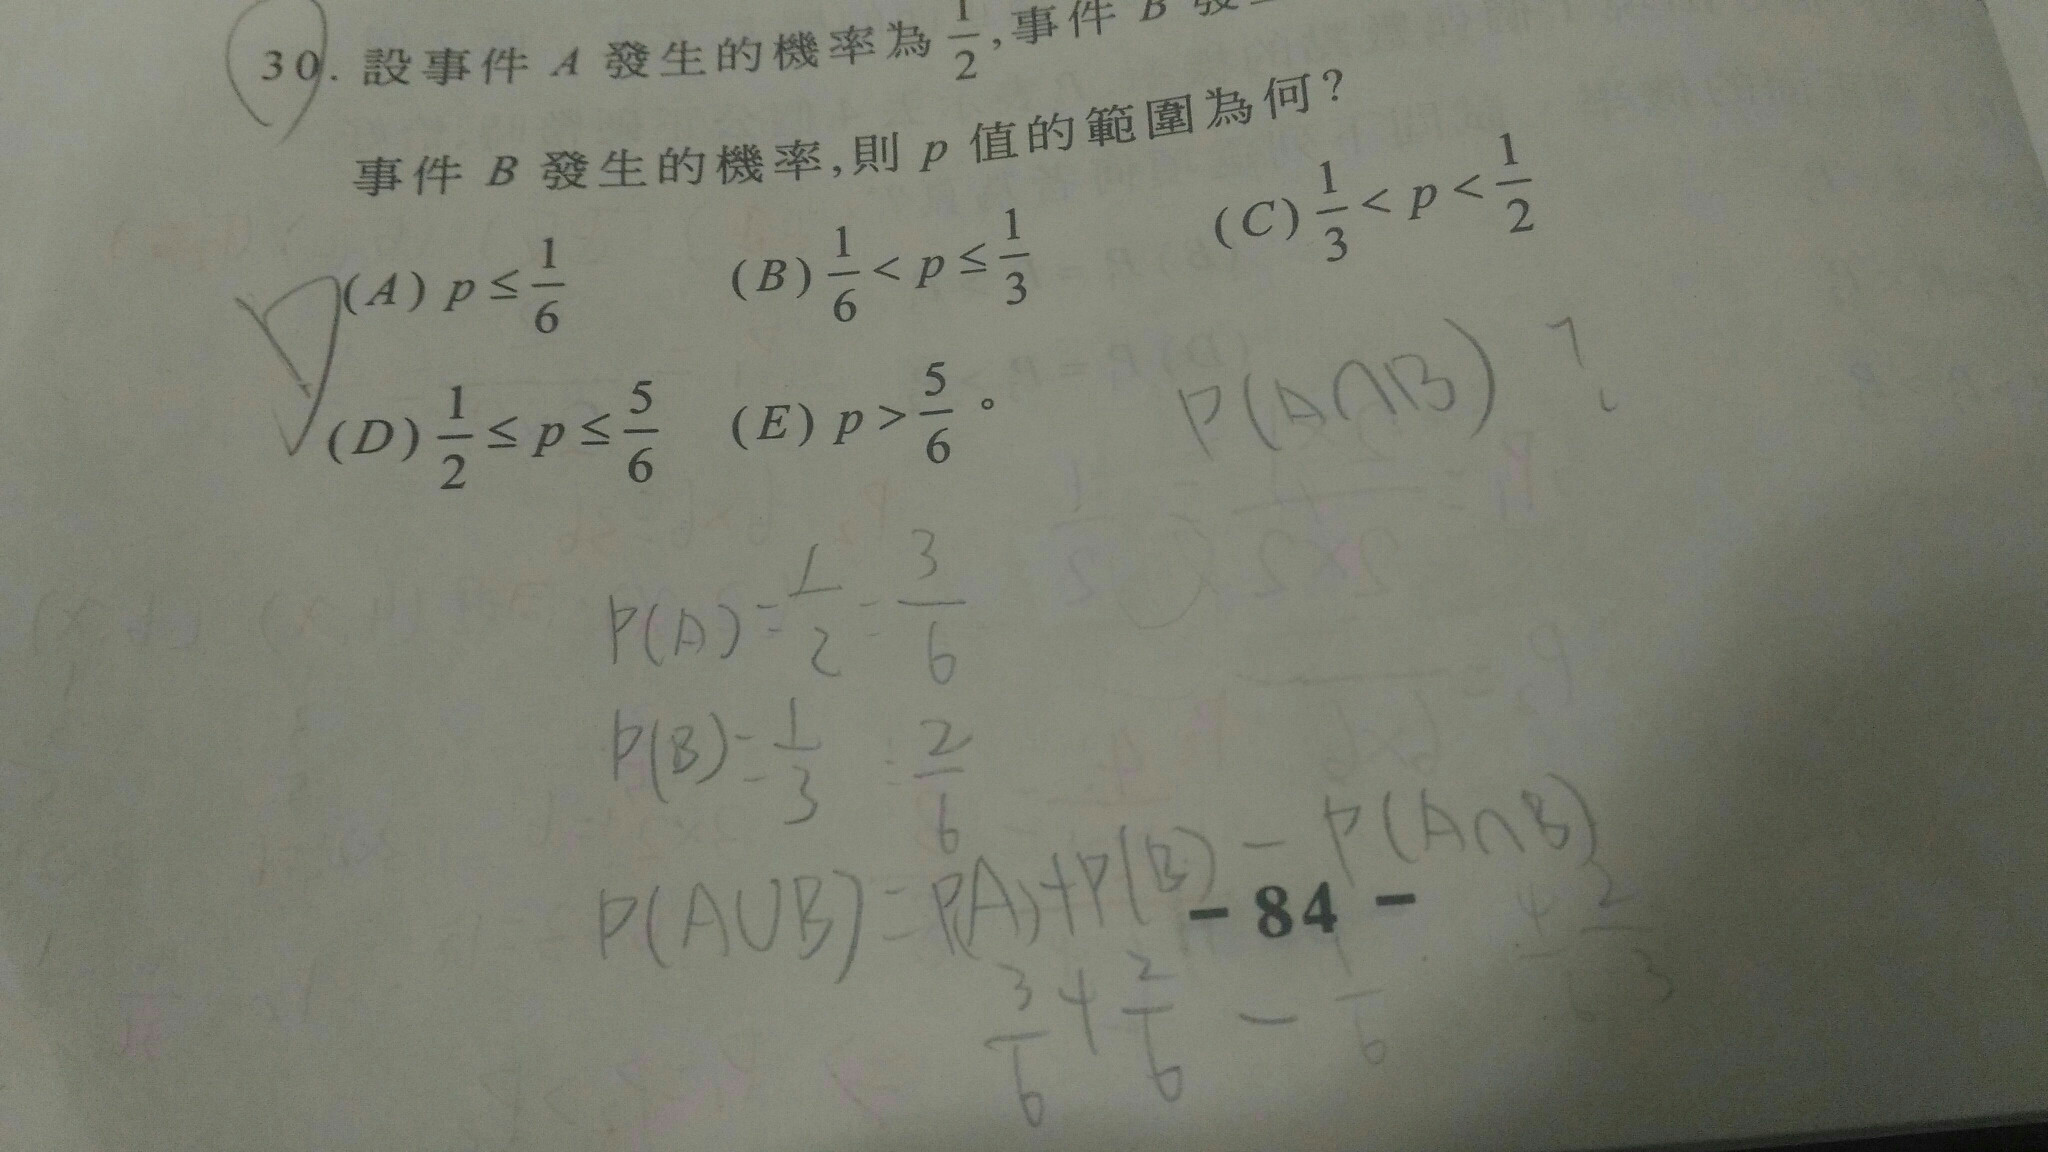 30. 設事件 A 發生的機率為 1/2,事件 B 發生
事件 B 發生的機率,則 p 值的範圍為何?
(A) p ≤ 1/6 (B) 1/6 < p ≤ 1/3 (C) 1/3 < p < 1/2
(D) 1/2 ≤ p ≤ 5/6 (E) p > 5/6 。
P(A∩B) ?
P(A) = 1/2 = 3/6
P(B) = 1/3 = 2/6
P(A∪B) = P(A) + P(B) - P(A∩B)
- 84 -
3/6 + 2/6 - 1/6